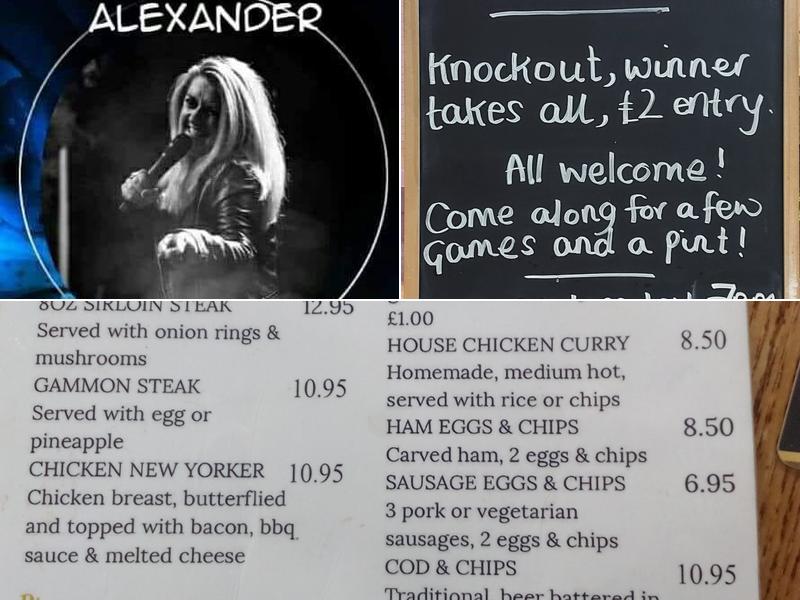 ALEXANDER
Knockout, winner
takes all, £2 entry.
All welcome!
Come along for a few
games and a pint!
8OZ SIRLOIN STEAK 12.95
Served with onion rings &
mushrooms
GAMMON STEAK 10.95
Served with egg or
pineapple
CHICKEN NEW YORKER 10.95
Chicken breast, butterflied
and topped with bacon, bbq
sauce & melted cheese
£1.00
HOUSE CHICKEN CURRY 8.50
Homemade, medium hot,
served with rice or chips
HAM EGGS & CHIPS 8.50
Carved ham, 2 eggs & chips
SAUSAGE EGGS & CHIPS 6.95
3 pork or vegetarian
sausages, 2 eggs & chips
COD & CHIPS 10.95
Traditional, beer battered in